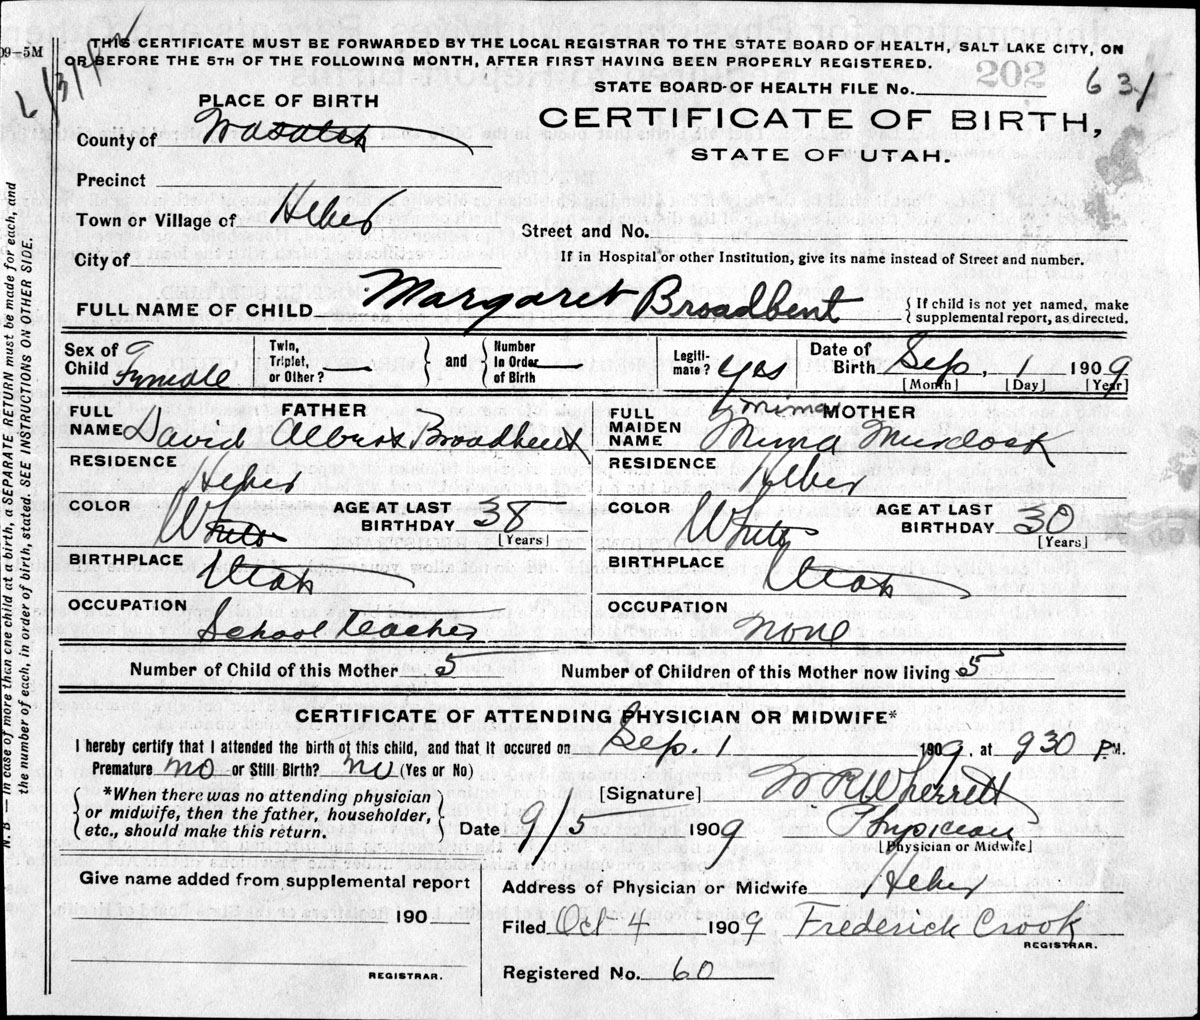 09-5M
THIS CERTIFICATE MUST BE FORWARDED BY THE LOCAL REGISTRAR TO THE STATE BOARD OF HEALTH, SALT LAKE CITY, ON
OR BEFORE THE 5TH OF THE FOLLOWING MONTH, AFTER FIRST HAVING BEEN PROPERLY REGISTERED.
202
STATE BOARD OF HEALTH FILE No. 631
PLACE OF BIRTH
CERTIFICATE OF BIRTH,
STATE OF UTAH.
County of Wasatch
Precinct
Town or Village of Heber
Street and No.
City of
If in Hospital or other Institution, give its name instead of Street and number.
FULL NAME OF CHILD Margaret Broadbent
{ If child is not yet named, make
supplemental report, as directed.
Sex of Child Female
Twin, Triplet, or Other? —
and
Number In Order of Birth —
Legiti-mate? yes
Date of Birth Sep. 1 1909
[Month] [Day] [Year]
FATHER
FULL NAME David Albert Broadbent
RESIDENCE Heber
COLOR White
AGE AT LAST BIRTHDAY 38
[Years]
BIRTHPLACE Utah
OCCUPATION School Teacher
MOTHER
Mima
FULL MAIDEN NAME Mima Murdock
RESIDENCE Heber
COLOR White
AGE AT LAST BIRTHDAY 30
[Years]
BIRTHPLACE Utah
OCCUPATION none
Number of Child of this Mother 5
Number of Children of this Mother now living 5
CERTIFICATE OF ATTENDING PHYSICIAN OR MIDWIFE*
I hereby certify that I attended the birth of this child, and that it occured on Sep. 1 1909, at 930 P.M.
Premature no or Still Birth? no (Yes or No)
*When there was no attending physician
or midwife, then the father, householder,
etc., should make this return.
[Signature] W R Wherritt
Date 9/5 1909 Physician
[Physician or Midwife]
Give name added from supplemental report
190
REGISTRAR.
Address of Physician or Midwife Heber
Filed Oct 4 1909 Frederick Crook
REGISTRAR.
Registered No. 60
N. B.—In case of more than one child at a birth, a SEPARATE RETURN must be made for each, and
the number of each, in order of birth, stated. SEE INSTRUCTIONS ON OTHER SIDE.